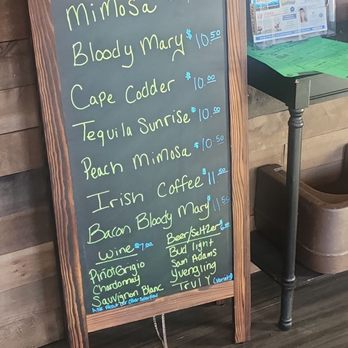 Mimosa
Bloody Mary $10.50
Cape Codder $10.00
Tequila Sunrise $10.00
Peach Mimosa $10.50
Irish Coffee $11.50
Bacon Bloody Mary $11.55
Wine $7.00
Pinot Grigio
Chardonnay
Sauvignon Blanc
Beer/Seltzer
Bud light
Sam Adams
Yuengling
TRULY